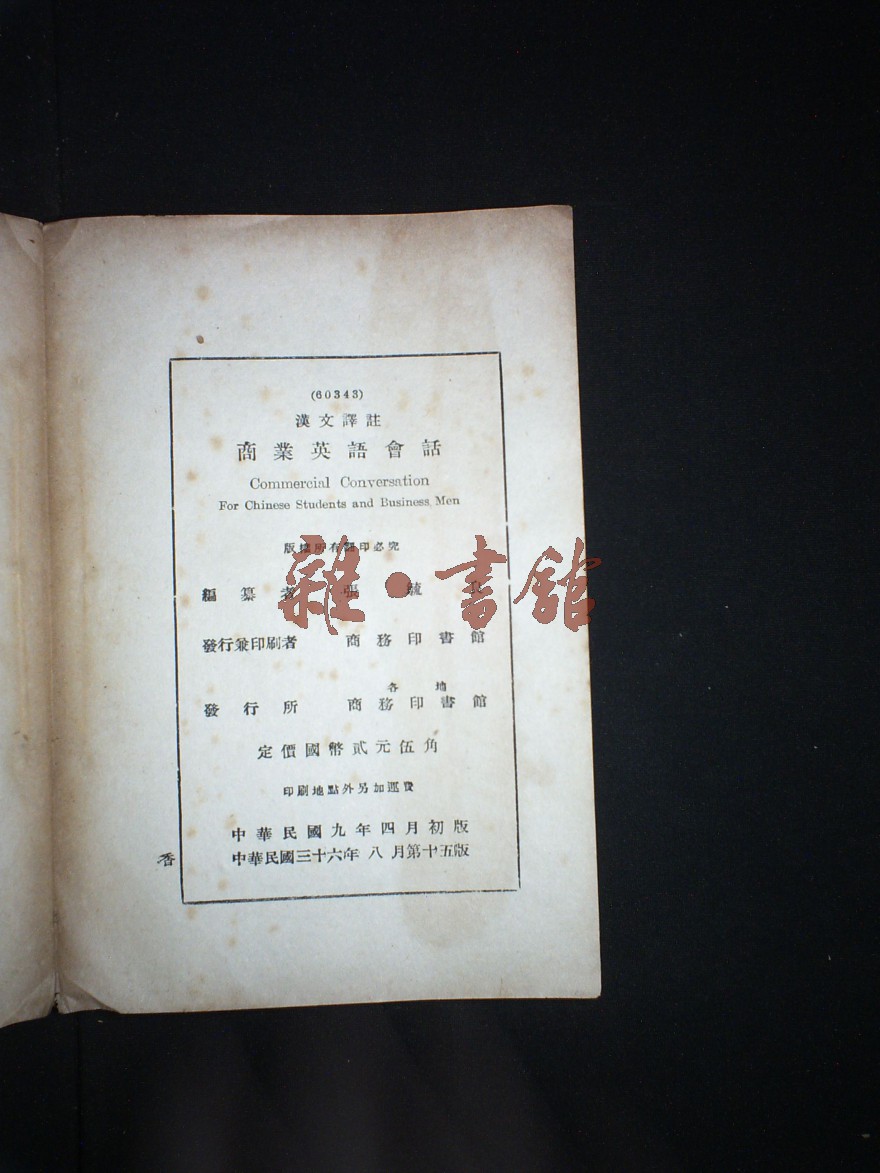 (60343)
漢文譯註
商業英語會話
Commercial Conversation
For Chinese Students and Business Men
版權所有翻印必究
編纂者 張毓良
雜·書館
發行兼印刷者 商務印書館
各地
發行所 商務印書館
定價國幣貳元伍角
印刷地點外另加運費
中華民國九年四月初版
香 中華民國三十六年八月第十五版